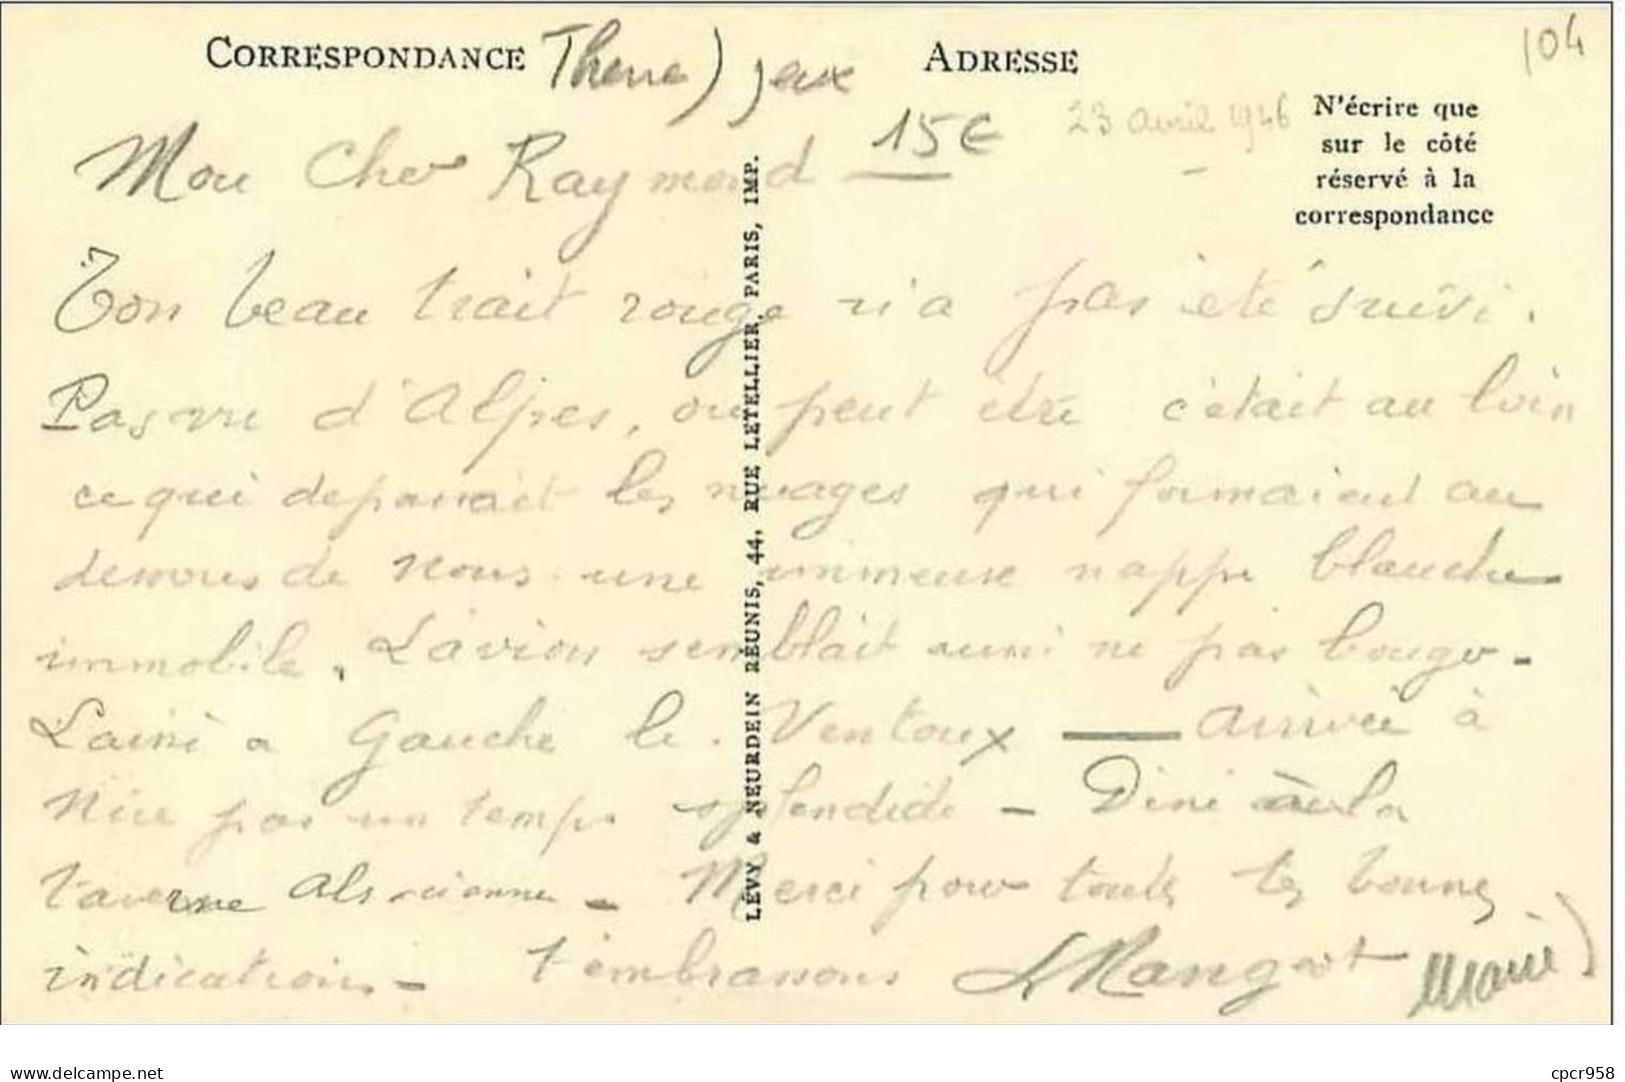 104
CORRESPONDANCE Theme) jeux ADRESSE
15€ 23 avril 1946
N'écrire que
sur le côté
réservé à la
correspondance
Mon Cher Raymond
Ton beau trait rouge n'a pas été suivi.
Pas vu d'Alpes, ou peut être c'était au loin
ce qui depassait les nuages qui formaient au
dessous de nous une immense nappe blanche
immobile. L'avion semblait aussi ne pas bouger -
Laissé à Gauche le Ventoux — Arrivée à
Nice pas un temps splendide - Diné à la
taverne Alsacienne - Merci pour toutes tes bonnes
indications - t'embrassons Mangeot Marie)
LÉVY & NEURDEIN RÉUNIS, 44, RUE LETELLIER, PARIS, IMP.
delcampe.net
cpcr958